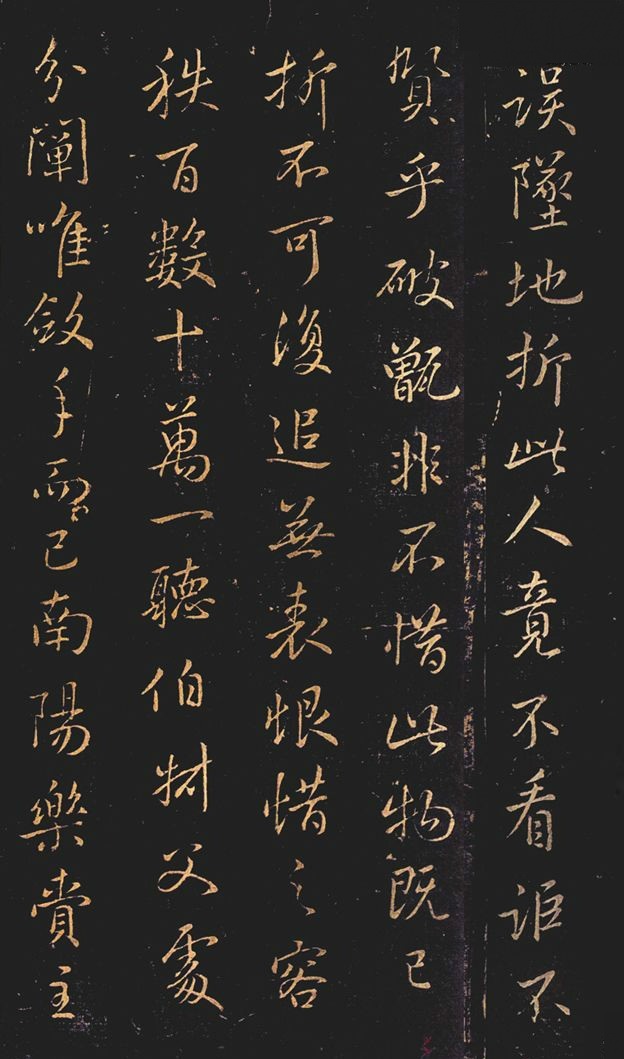 誤墜地折此人竟不看詎不
賢乎破甑非不惜此物既已
折不可復追無表恨惜之容
秩百數十萬一聽伯叔父處
分闡唯斂手而已南陽樂賣主